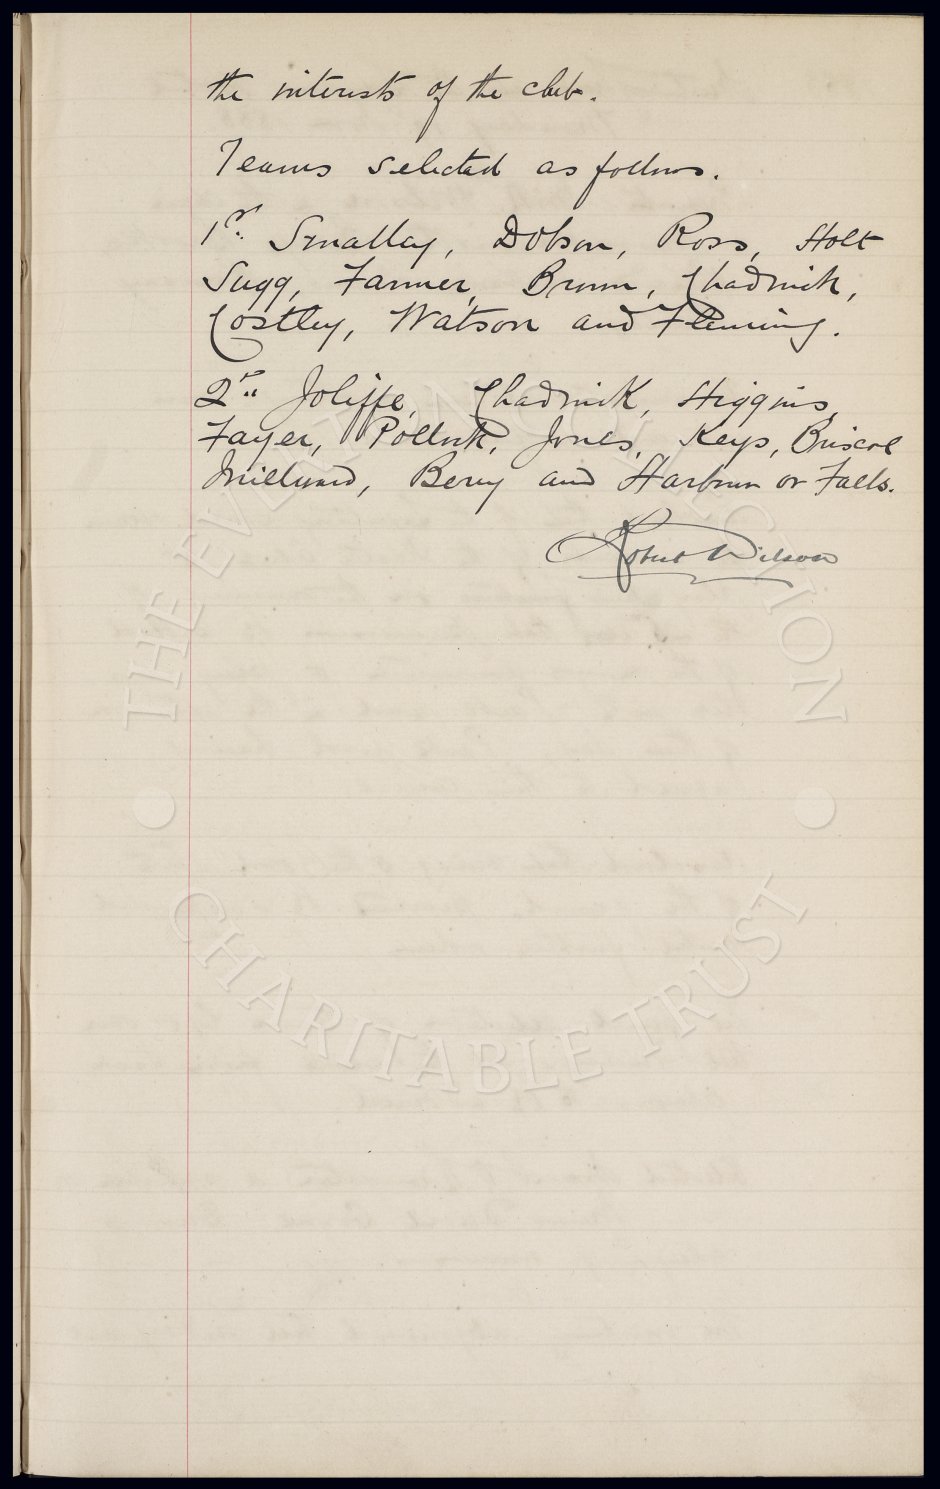 the interests of the club.
Teams selected as follows.
1st Smalley, Dobson, Ross, Holt
Sugg, Farmer, Brown, Chadwick,
Costley, Watson and Fleming.
2nd Joliffe, Chadwick, Higgins,
Fayer, Pollock, Jones, Keys, Briscoe
Millward, Berry and Harbour or Falls.
Robert Wilson
THE EVERTON COLLECTION
CHARITABLE TRUST